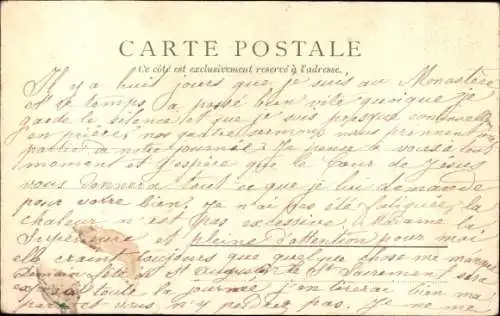 CARTE POSTALE
Ce côté est exclusivement reservé à l'adresse.
Il y a huit jours que je suis au Monastère
et ce temps a passé bien vite quoique je
garde le silence et que je suis presque continuellement
en prières, nos quatre sermons nous prennent une
partie de notre journée. Je pense à vous à tout
moment et j'espère que le Cœur de Jésus
vous donnera tout ce que je lui demande
pour votre bien. Je n'ai pas été fatiguée, la
chaleur n'est pas excessive. Madame la
Supérieure est pleine d'attention pour moi
elle craint toujours que quelque chose me manque
Demain fête de St Augustin le St Sacrement sera
exposé toute la journée j'en tirerai bien ma
part et vous n'y perdrez pas. Je ne me